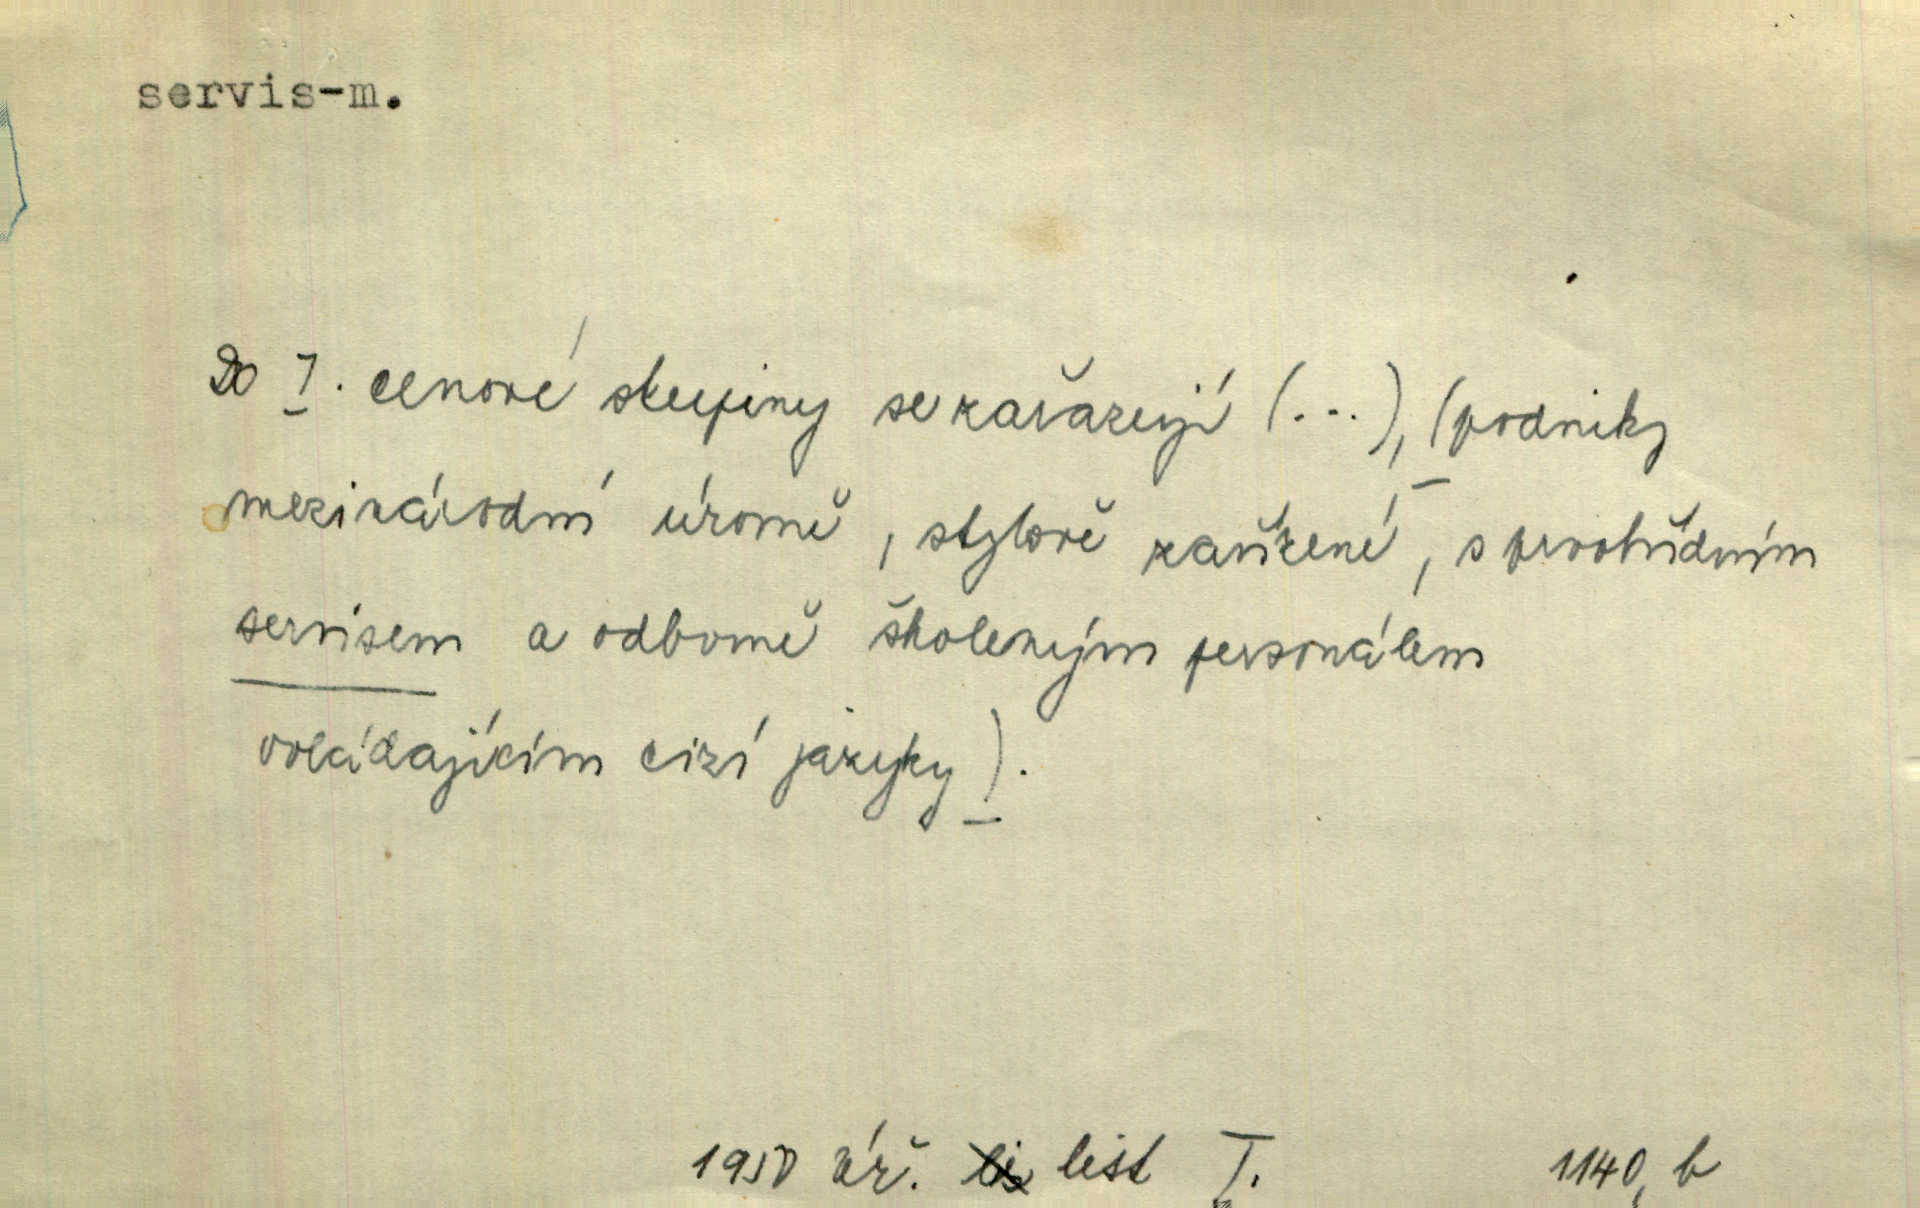 servis-m.
Do I. cenové skupiny se zařazují (...), (podniky
mezinárodní úrovně, stylově zařízené, s prvotřídním
servisem a odborně školeným personálem
ovládajícím cizí jazyky).
1950 úř. list I. 1140, b